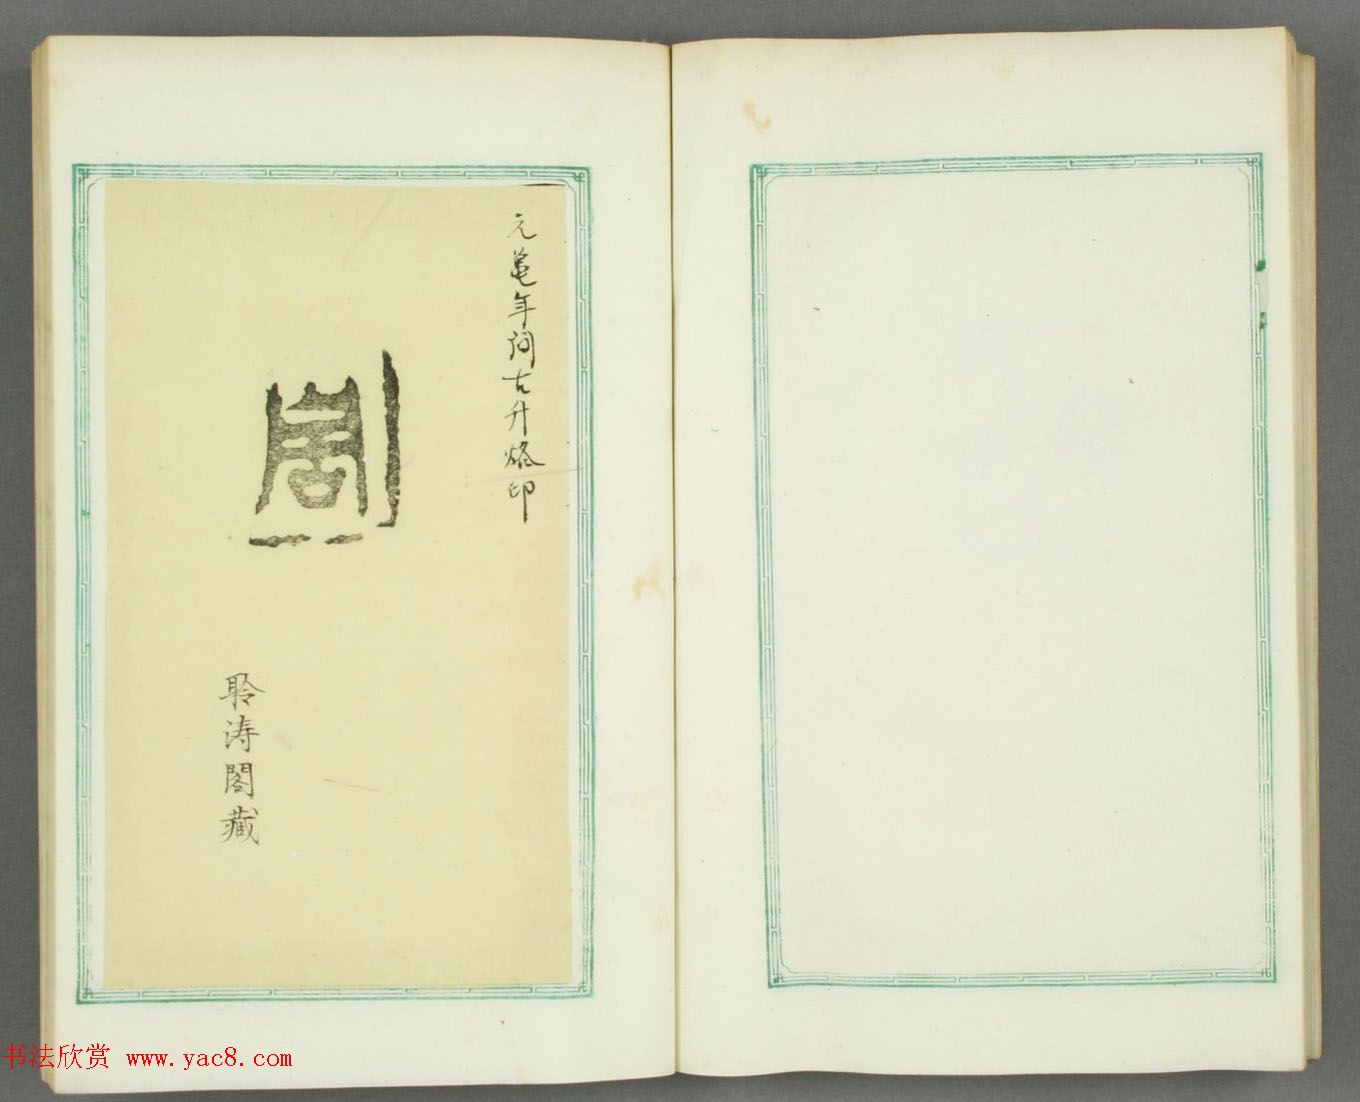 元亀年间古升烙印
聆涛閣藏
书法欣赏 www.yac8.com